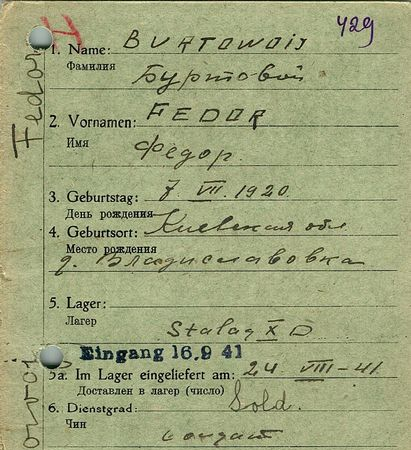 429
1. Name: BURTOWOIJ
Фамилия Буртовой
2. Vornamen: FEDOR
Имя Федор.
3. Geburtstag: 7 VII. 1920.
День рождения
4. Geburtsort: Киевская обл
Место рождения
д. Владиславовка
5. Lager:
Лагер
Stalag X D
Eingang 16.9 41
5a. Im Lager eingeliefert am: 24 VIII-41.
Доставлен в лагер (число)
6. Dienstgrad: Sold.
Чин
солдат
Fedor